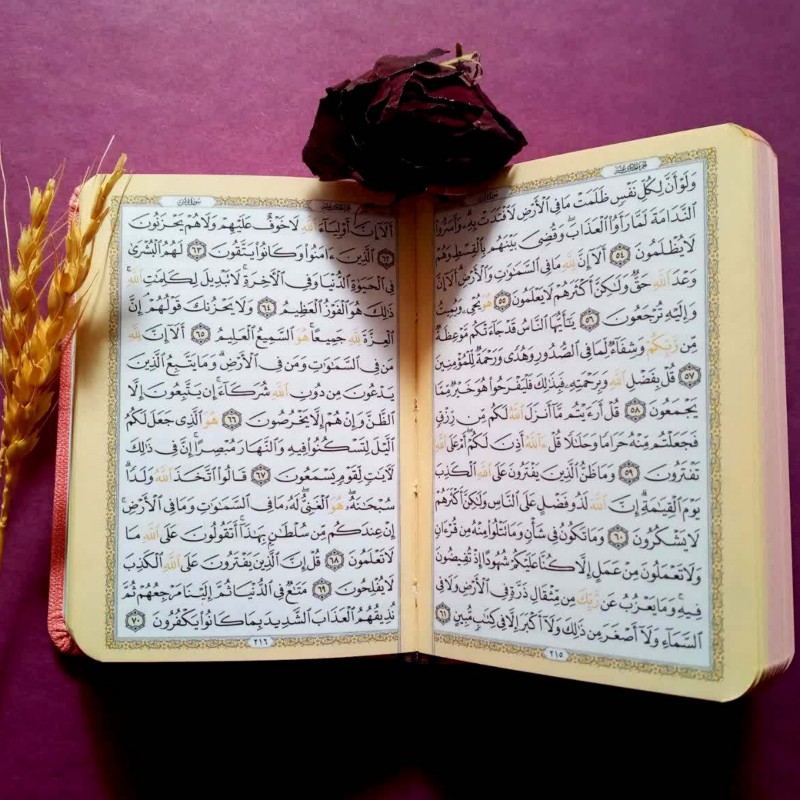 وَلَوْ أَنَّ لِكُلِّ نَفْسٍ ظَلَمَتْ مَا فِي ٱلْأَرْضِ لَٱفْتَدَتْ بِهِۦ وَأَسَرُّوا۟
ٱلنَّدَامَةَ لَمَّا رَأَوُا۟ ٱلْعَذَابَ وَقُضِىَ بَيْنَهُم بِٱلْقِسْطِ وَهُمْ
لَا يُظْلَمُونَ ٥٤ أَلَآ إِنَّ لِلَّهِ مَا فِي ٱلسَّمَٰوَٰتِ وَٱلْأَرْضِ أَلَآ إِنَّ
وَعْدَ ٱللَّهِ حَقٌّ وَلَٰكِنَّ أَكْثَرَهُمْ لَا يَعْلَمُونَ ٥٥ هُوَ يُحْىِۦ وَيُمِيتُ
وَإِلَيْهِ تُرْجَعُونَ ٥٦ يَٰٓأَيُّهَا ٱلنَّاسُ قَدْ جَآءَتْكُم مَّوْعِظَةٌ
مِّن رَّبِّكُمْ وَشِفَآءٌ لِّمَا فِي ٱلصُّدُورِ وَهُدًى وَرَحْمَةٌ لِّلْمُؤْمِنِينَ
٥٧ قُلْ بِفَضْلِ ٱللَّهِ وَبِرَحْمَتِهِۦ فَبِذَٰلِكَ فَلْيَفْرَحُوا۟ هُوَ خَيْرٌ مِّمَّا
يَجْمَعُونَ ٥٨ قُلْ أَرَءَيْتُم مَّآ أَنزَلَ ٱللَّهُ لَكُم مِّن رِّزْقٍ
فَجَعَلْتُم مِّنْهُ حَرَامًا وَحَلَٰلًا قُلْ ءَآللَّهُ أَذِنَ لَكُمْ أَمْ عَلَى ٱللَّهِ
تَفْتَرُونَ ٥٩ وَمَا ظَنُّ ٱلَّذِينَ يَفْتَرُونَ عَلَى ٱللَّهِ ٱلْكَذِبَ
يَوْمَ ٱلْقِيَٰمَةِ إِنَّ ٱللَّهَ لَذُو فَضْلٍ عَلَى ٱلنَّاسِ وَلَٰكِنَّ أَكْثَرَهُمْ
لَا يَشْكُرُونَ ٦٠ وَمَا تَكُونُ فِي شَأْنٍ وَمَا تَتْلُوا۟ مِنْهُ مِن قُرْءَانٍ
وَلَا تَعْمَلُونَ مِنْ عَمَلٍ إِلَّا كُنَّا عَلَيْكُمْ شُهُودًا إِذْ تُفِيضُونَ
فِيهِ وَمَا يَعْزُبُ عَن رَّبِّكَ مِن مِّثْقَالِ ذَرَّةٍ فِي ٱلْأَرْضِ وَلَا فِي
ٱلسَّمَآءِ وَلَآ أَصْغَرَ مِن ذَٰلِكَ وَلَآ أَكْبَرَ إِلَّا فِي كِتَٰبٍ مُّبِينٍ ٦١
٢١٥
أَلَآ إِنَّ أَوْلِيَآءَ ٱللَّهِ لَا خَوْفٌ عَلَيْهِمْ وَلَا هُمْ يَحْزَنُونَ
٦٢ ٱلَّذِينَ ءَامَنُوا۟ وَكَانُوا۟ يَتَّقُونَ ٦٣ لَهُمُ ٱلْبُشْرَىٰ
فِي ٱلْحَيَوٰةِ ٱلدُّنْيَا وَفِي ٱلْأَخِرَةِ لَا تَبْدِيلَ لِكَلِمَٰتِ ٱللَّهِ
ذَٰلِكَ هُوَ ٱلْفَوْزُ ٱلْعَظِيمُ ٦٤ وَلَا يَحْزُنكَ قَوْلُهُمْ إِنَّ
ٱلْعِزَّةَ لِلَّهِ جَمِيعًا هُوَ ٱلسَّمِيعُ ٱلْعَلِيمُ ٦٥ أَلَآ إِنَّ لِلَّهِ
مَن فِي ٱلسَّمَٰوَٰتِ وَمَن فِي ٱلْأَرْضِ وَمَا يَتَّبِعُ ٱلَّذِينَ
يَدْعُونَ مِن دُونِ ٱللَّهِ شُرَكَآءَ إِن يَتَّبِعُونَ إِلَّا
ٱلظَّنَّ وَإِنْ هُمْ إِلَّا يَخْرُصُونَ ٦٦ هُوَ ٱلَّذِي جَعَلَ لَكُمُ
ٱلَّيْلَ لِتَسْكُنُوا۟ فِيهِ وَٱلنَّهَارَ مُبْصِرًا إِنَّ فِي ذَٰلِكَ
لَأَيَٰتٍ لِّقَوْمٍ يَسْمَعُونَ ٦٧ قَالُوا۟ ٱتَّخَذَ ٱللَّهُ وَلَدًا
سُبْحَٰنَهُۥ هُوَ ٱلْغَنِىُّ لَهُۥ مَا فِي ٱلسَّمَٰوَٰتِ وَمَا فِي ٱلْأَرْضِ
إِنْ عِندَكُم مِّن سُلْطَٰنٍۭ بِهَٰذَآ أَتَقُولُونَ عَلَى ٱللَّهِ مَا
لَا تَعْلَمُونَ ٦٨ قُلْ إِنَّ ٱلَّذِينَ يَفْتَرُونَ عَلَى ٱللَّهِ ٱلْكَذِبَ
لَا يُفْلِحُونَ ٦٩ مَتَٰعٌ فِي ٱلدُّنْيَا ثُمَّ إِلَيْنَا مَرْجِعُهُمْ ثُمَّ
نُذِيقُهُمُ ٱلْعَذَابَ ٱلشَّدِيدَ بِمَا كَانُوا۟ يَكْفُرُونَ ٧٠
٢١٦